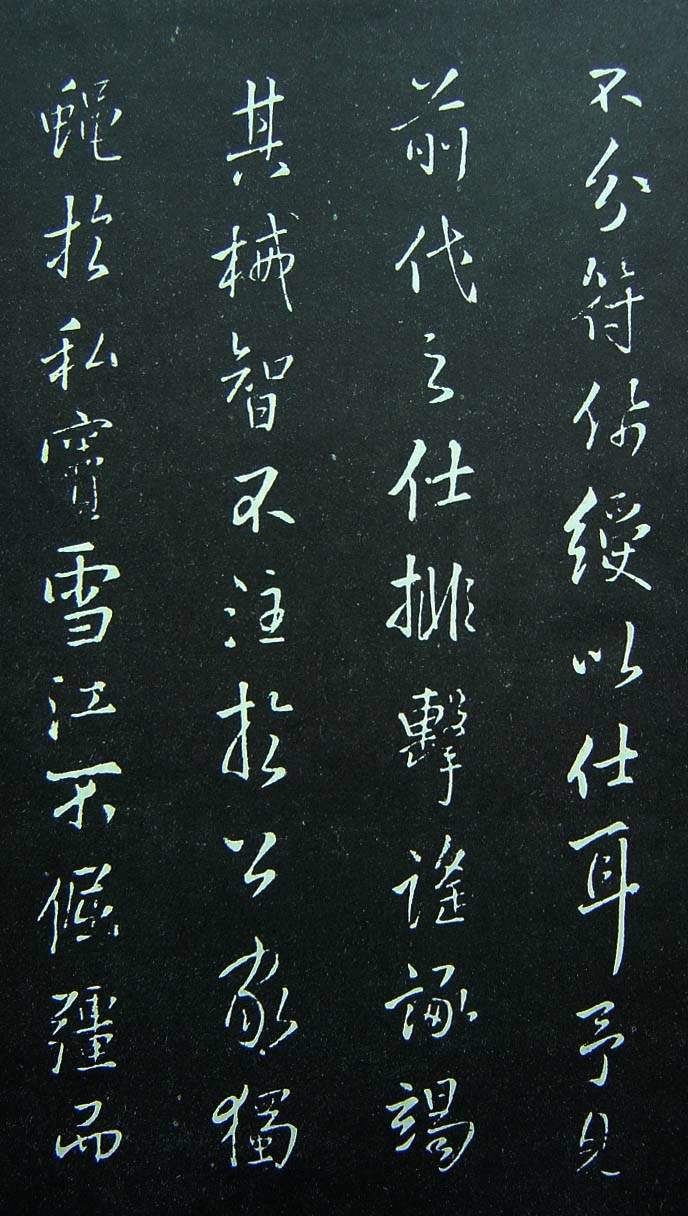 不分符佩綬以仕耳予見
前代之仕排擊謠諑竭
其械智不注於公家獨
蠅於私竇雪江不倔彊而